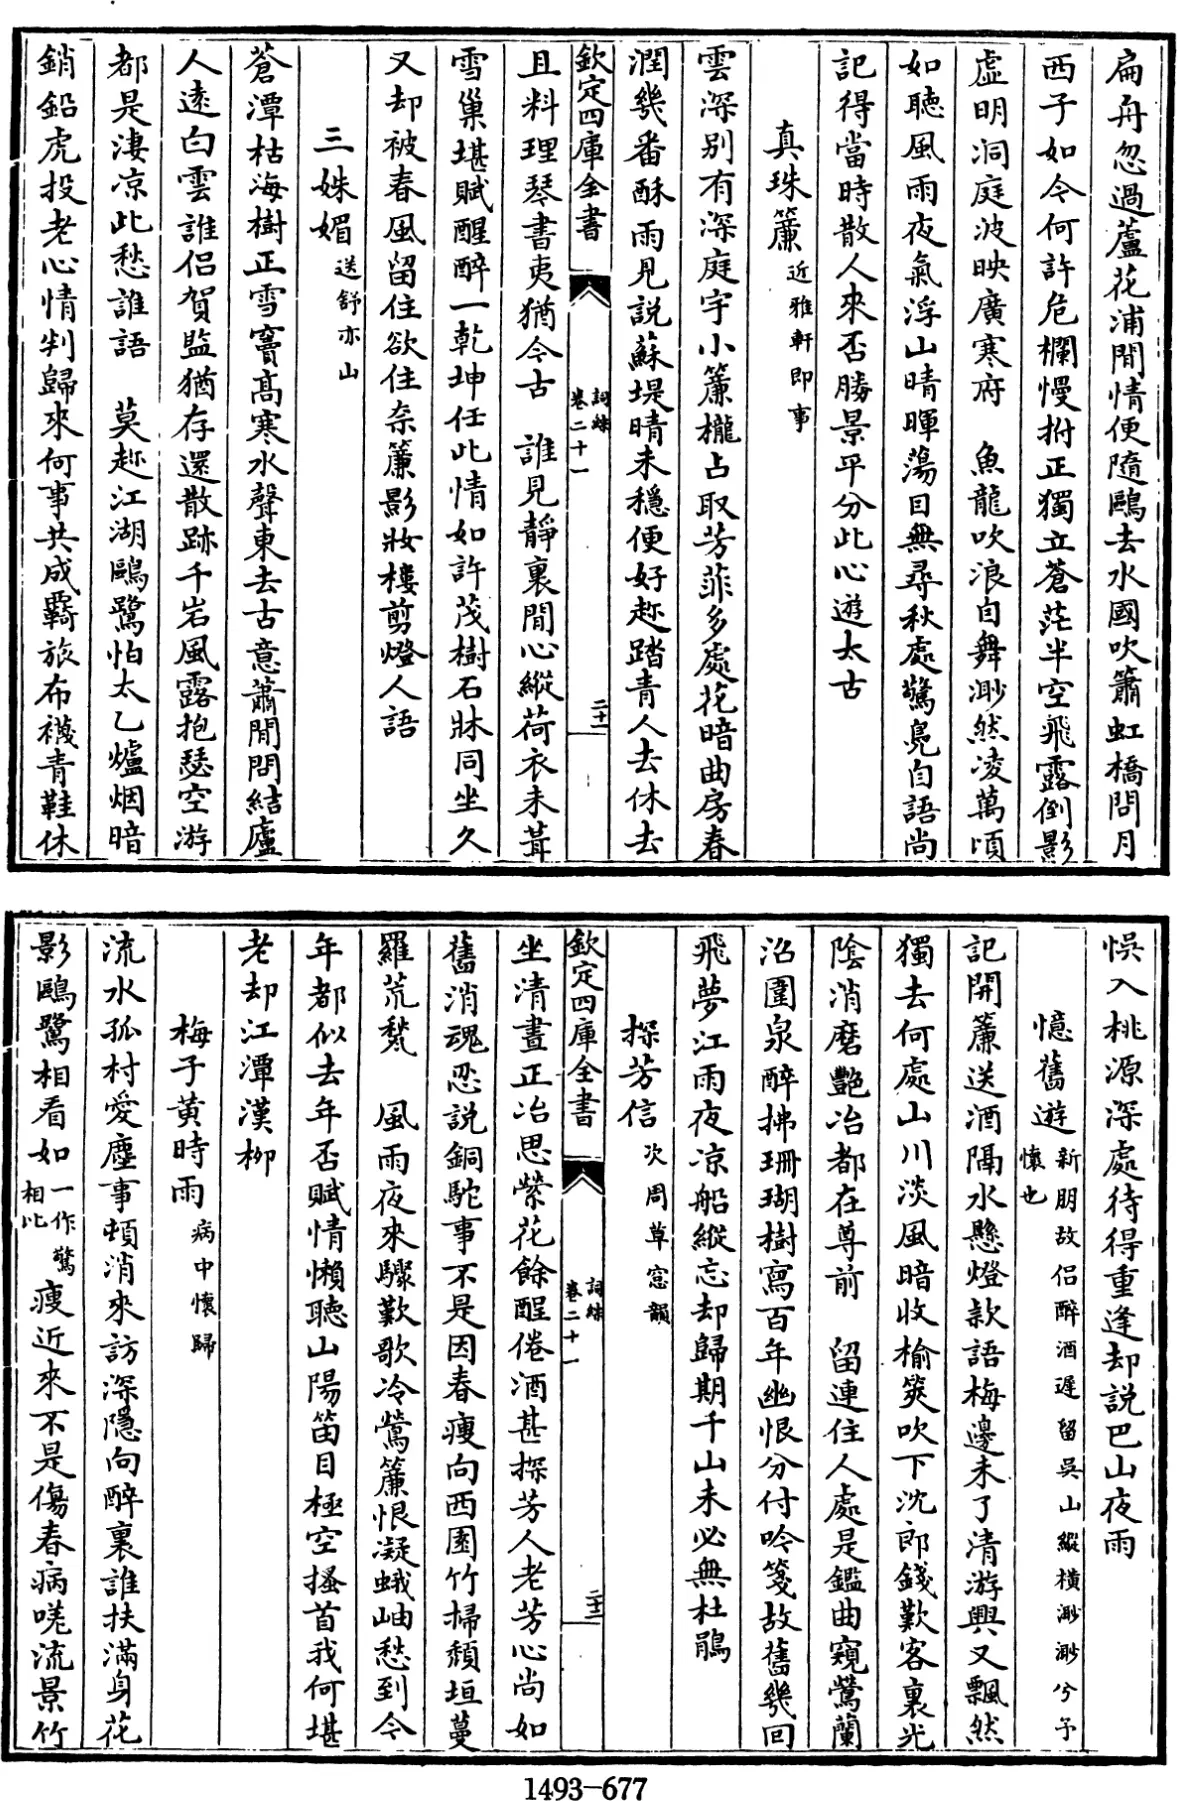 扁舟忽過蘆花浦閒情便隨鷗去水國吹簫虹橋問月
西子如今何許危欄慢拊正獨立蒼茫半空飛露倒影
虛明洞庭波映廣寒府　魚龍吹浪自舞渺然凌萬頃
如聽風雨夜氣浮山晴暉蕩目無尋秋處驚鳧自語尚
記得當時散人來否勝景平分此心遊太古
真珠簾近雅軒即事
雲深別有深庭宇小簾櫳占取芳菲多處花暗曲房春
潤幾番酥雨見説蘇堤晴未穩便好趂踏青人去休去
欽定四庫全書　詞綜　卷二十一　二十一
且料理琴書夷猶今古　誰見靜裏閒心縱荷衣未葺
雪巢堪賦醒醉一乾坤任此情如許茂樹石牀同坐久
又却被春風留住欲住奈簾影妝樓剪燈人語
三姝媚送舒亦山
蒼潭枯海樹正雪竇髙寒水聲東去古意蕭閒問結廬
人逺白雲誰侣賀監猶存還散跡千岩風露抱瑟空游
都是淒凉此愁誰語　莫趂江湖鷗鷺怕太乙爐烟暗
銷鉛虎投老心情判歸來何事共成羇旅布襪青鞋休
悞入桃源深處待得重逢却説巴山夜雨
憶舊遊新朋故侣醉酒遲留吳山縱橫渺渺兮予懷也
記開簾送酒隔水懸燈款語梅邊未了清游興又飄然
獨去何處山川淡風暗收榆筴吹下沈郎錢歎客裏光
陰消磨艷冶都在尊前　留連住人處是鑑曲窺鶯蘭
沼圍泉醉拂珊瑚樹寫百年幽恨分付吟箋故舊幾回
飛夢江雨夜凉船縱忘却歸期千山未必無杜鵑
探芳信次周草窓韻
欽定四庫全書　詞綜　卷二十一　二十二
坐清晝正冶思縈花餘酲倦酒甚探芳人老芳心尚如
舊消魂忍説銅駝事不是因春瘦向西園竹掃頽垣蔓
羅荒甃　風雨夜來驟歎歌冷鶯簾恨凝蛾岫愁到今
年都似去年否賦情懶聽山陽笛目極空搔首我何堪
老却江潭漢柳
梅子黄時雨病中懷歸
流水孤村愛塵事頓消來訪深隱向醉裏誰扶滿身花
影鷗鷺相看如一作驚相比瘦近來不是傷春病嗟流景竹
1493-677